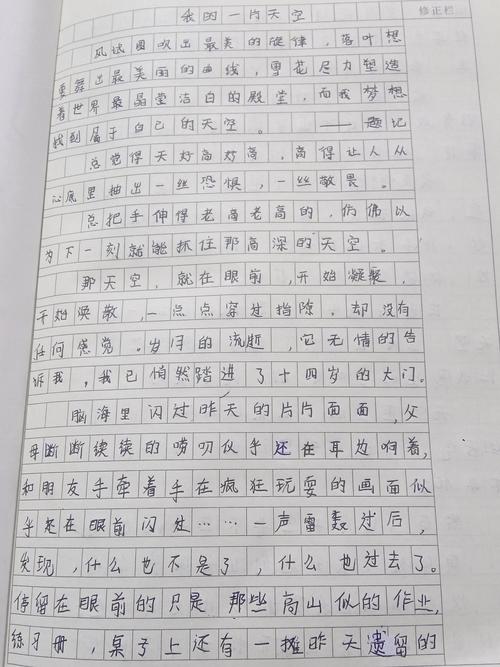 我的一片天空
修正栏
风试图吹出最美的旋律，落叶想
要舞出最美丽的曲线，雪花尽力塑造
着世界最晶莹洁白的殿堂，而我梦想
找到属于自己的天空。——题记
总觉得天好高好高，高得让人从
心底里抽出一丝恐惧，一丝敬畏。
总把手伸得老高老高的，仿佛以
为下一刻就能抓住那高深的天空。
那天空，就在眼前，开始凝聚，
开始涣散，一点点穿过指隙，却没有
任何感觉。岁月的流逝，它无情的告
诉我，我已悄然踏进了十四岁的大门。
脑海里闪过昨天的片片面面，父
母断断续续的唠叨似乎还在耳边响着，
和朋友手牵着手在疯狂玩耍的画面似
乎还在眼前闪过……一声雷轰过后，
发现，什么也不是了，什么也过去了。
停留在眼前的只是那些高山似的作业，
练习册，桌子上还有一摊昨天遗留的